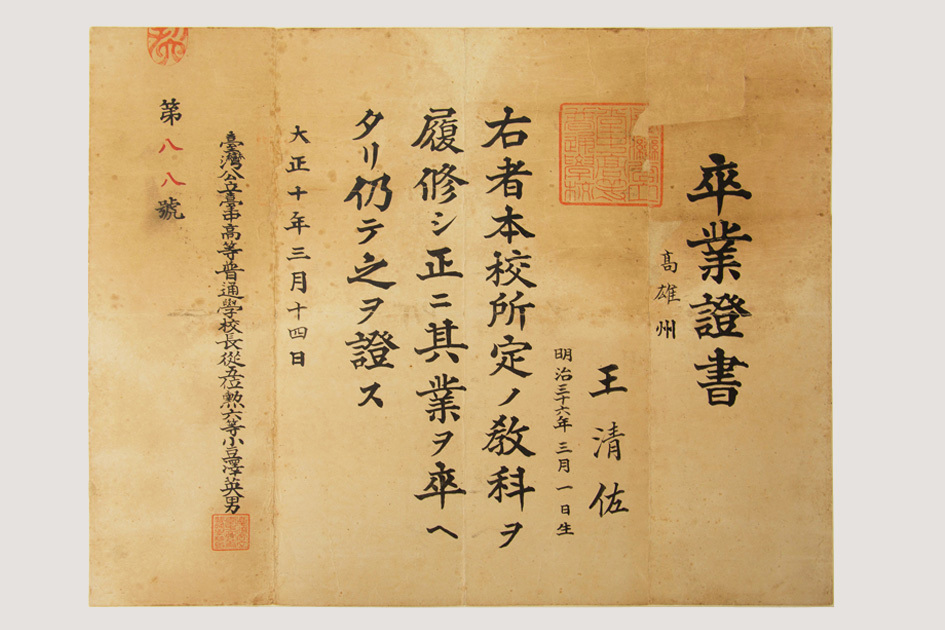 卒業證書
高雄州
王清佐
明治三十六年三月一日生
右者本校所定ノ教科ヲ
履修シ正ニ其業ヲ卒ヘ
タリ仍テ之ヲ證ス
大正十年三月十四日
臺灣公立臺中高等普通學校長從五位勲六等小豆澤英男
第八八號